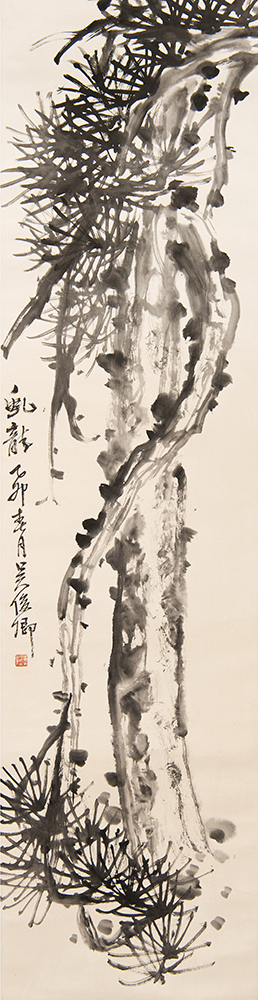 虬龍乙卯春月吳俊卿